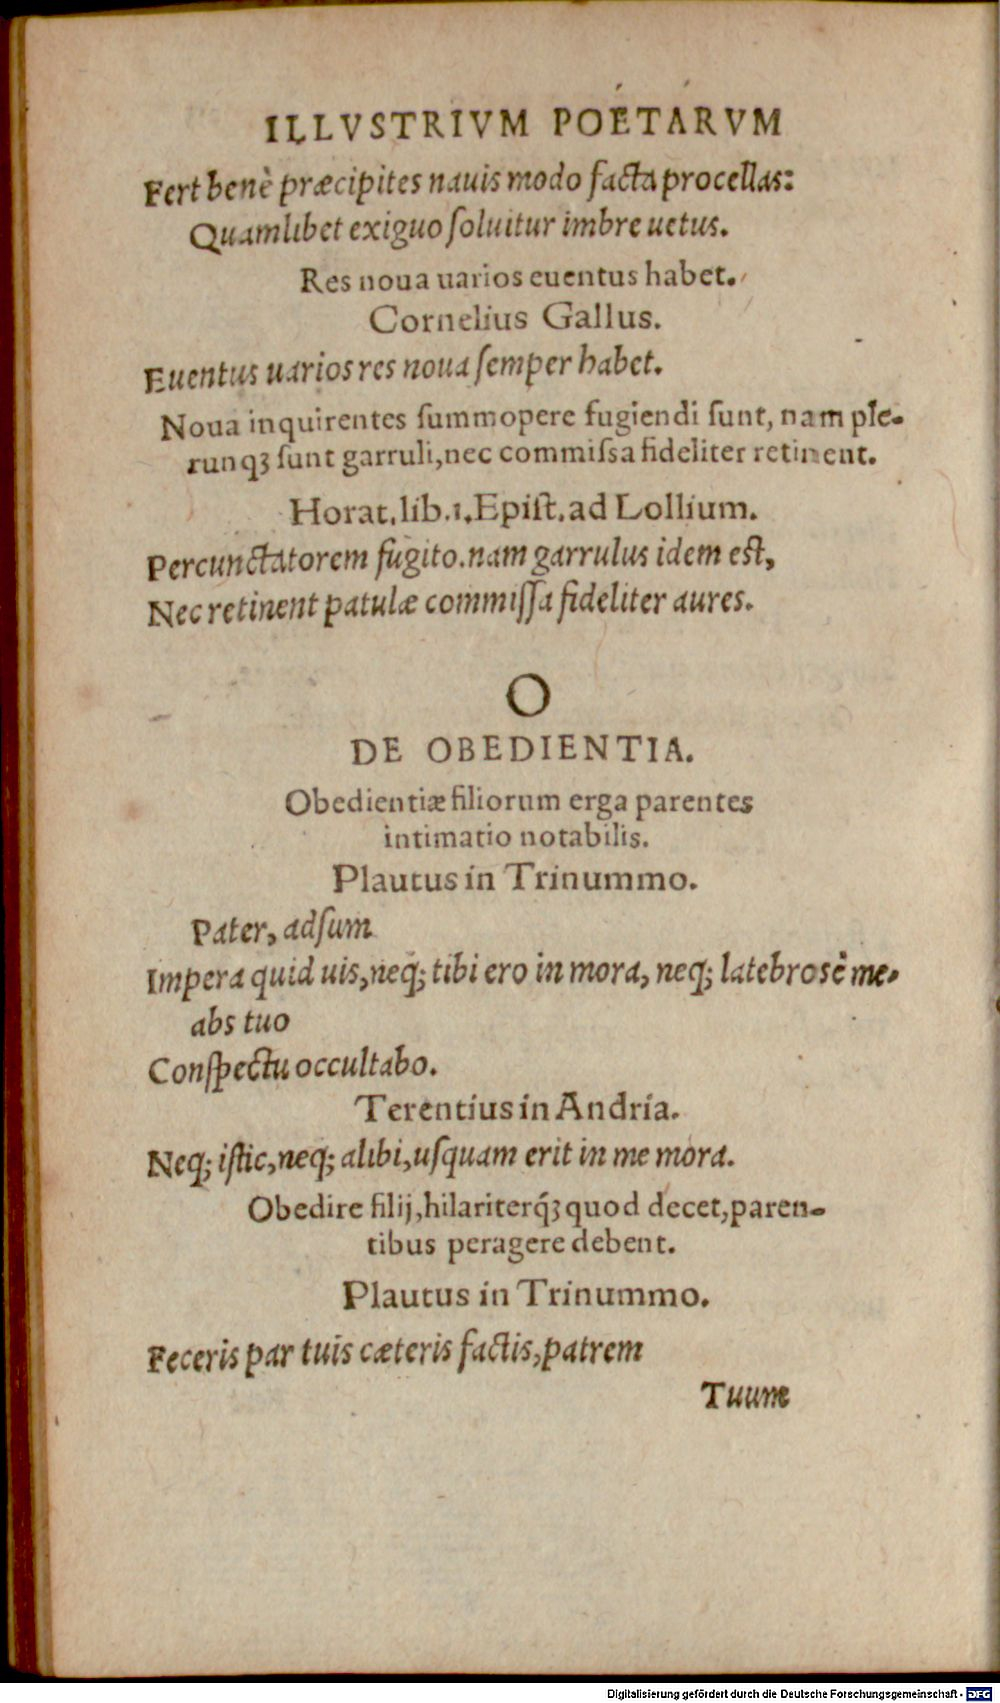 ILLVSTRIVM POÉTARVM
Fert benè præcipites nauis modo facta procellas:
Quamlibet exiguo ſoluitur imbre uetus.
Res noua uarios euentus habet.
Cornelius Gallus.
Euentus uarios res noua ſemper habet.
Noua inquirentes ſummopere fugiendi ſunt, nam ple-
runqꝫ ſunt garruli, nec commiſſa fideliter retinent.
Horat. lib. 1. Epiſt. ad Lollium.
Percunctatorem fugito. nam garrulus idem eſt,
Nec retinent patulæ commiſſa fideliter aures.
O
DE OBEDIENTIA.
Obedientiæ filiorum erga parentes
intimatio notabilis.
Plautus in Trinummo.
Pater, adſum
Impera quid uis, neq; tibi ero in mora, neq; latebrosè me-
abs tuo
Conſpectu occultabo.
Terentius in Andria.
Neq; iſtic, neq; alibi, uſquam erit in me mora.
Obedire filij, hilariterq́ꝫ quod decet, paren-
tibus peragere debent.
Plautus in Trinummo.
Feceris par tuis cæteris factis, patrem
Tuum
Digitalisierung gefördert durch die Deutsche Forschungsgemeinschaft - DFG